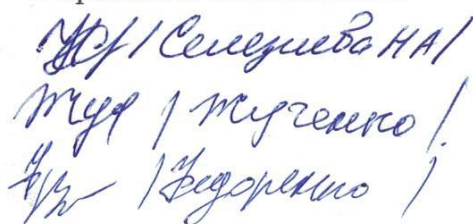 /Селезнева НА/
Жуч /Жученко/
/Федоренко/